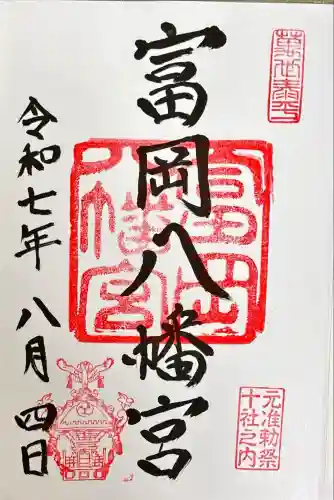 萬世泰平
富岡八幡宮
富岡
八幡宮
元准勅祭
十社之内
令和七年 八月 四日